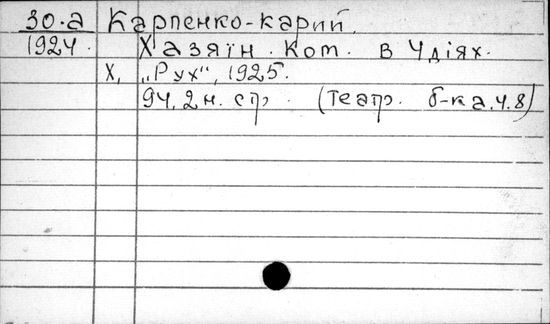 30.а Карпенко-карий.
1924. Хазяїн. Ком. в 4 діях.
Х, „Рух“, 1925.
94, 2 н. стр. (театр. б-ка. ч. 8)